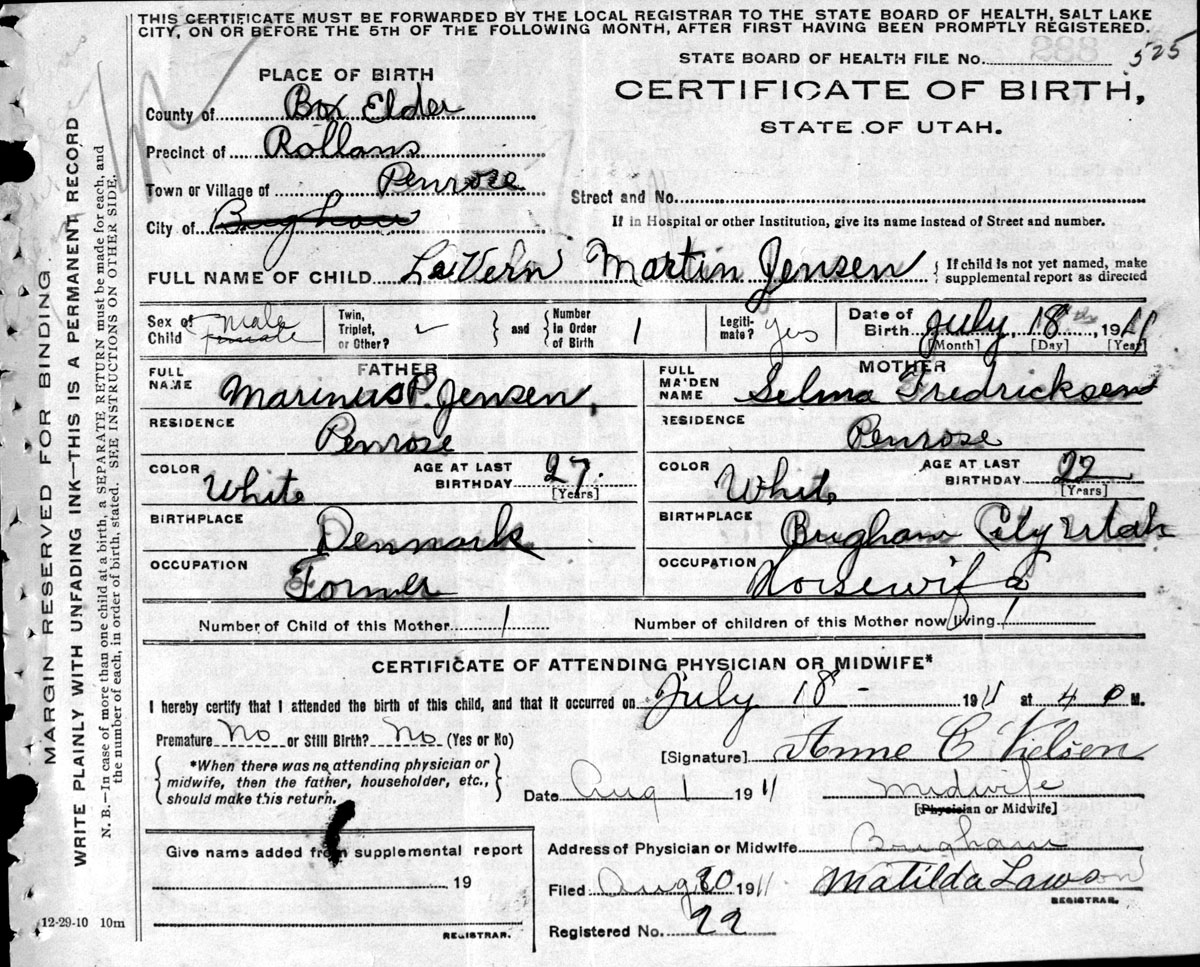 THIS CERTIFICATE MUST BE FORWARDED BY THE LOCAL REGISTRAR TO THE STATE BOARD OF HEALTH, SALT LAKE
CITY, ON OR BEFORE THE 5TH OF THE FOLLOWING MONTH, AFTER FIRST HAVING BEEN PROMPTLY REGISTERED.
STATE BOARD OF HEALTH FILE No. 525
PLACE OF BIRTH
CERTIFICATE OF BIRTH,
STATE OF UTAH.
County of Box Elder
Precinct of Rollans
Town or Village of Penrose
Street and No.
City of Brigham
If in Hospital or other Institution, give its name instead of Street and number.
FULL NAME OF CHILD LaVern Martin Jensen { If child is not yet named, make
supplemental report as directed
Sex of Child Male Female
Twin, Triplet, or Other? and Number in Order of Birth 1
Legitimate? yes
Date of Birth July 18th 1911
[Month] [Day] [Year]
FATHER
FULL NAME Marinus P. Jensen,
RESIDENCE Penrose
COLOR White AGE AT LAST BIRTHDAY 27. [Years]
BIRTHPLACE Denmark
OCCUPATION Former
MOTHER
FULL MAIDEN NAME Selma Fredricksen
RESIDENCE Penrose
COLOR White AGE AT LAST BIRTHDAY 22 [Years]
BIRTHPLACE Brigham City Utah
OCCUPATION Horsewife
Number of Child of this Mother 1 Number of children of this Mother now living 1
CERTIFICATE OF ATTENDING PHYSICIAN OR MIDWIFE*
I hereby certify that I attended the birth of this child, and that it occurred on July 18 - 1911 at 4 P M.
Premature No or Still Birth? No (Yes or No)
[Signature] Anne C Nielsen
{ *When there was no attending physician or
midwife, then the father, householder, etc.,
should make this return. }
Date Aug 1 1911 Midwife
[Physician or Midwife]
Give name added from supplemental report
19
REGISTRAR.
Address of Physician or Midwife Brigham
Filed Aug 30 1911 Matilda Lawson
REGISTRAR.
Registered No. 22
12-29-10 10m
MARGIN RESERVED FOR BINDING
WRITE PLAINLY WITH UNFADING INK—THIS IS A PERMANENT RECORD
N. B.—In case of more than one child at a birth, a SEPARATE RETURN must be made for each, and
the number of each, in order of birth, stated. SEE INSTRUCTIONS ON OTHER SIDE.